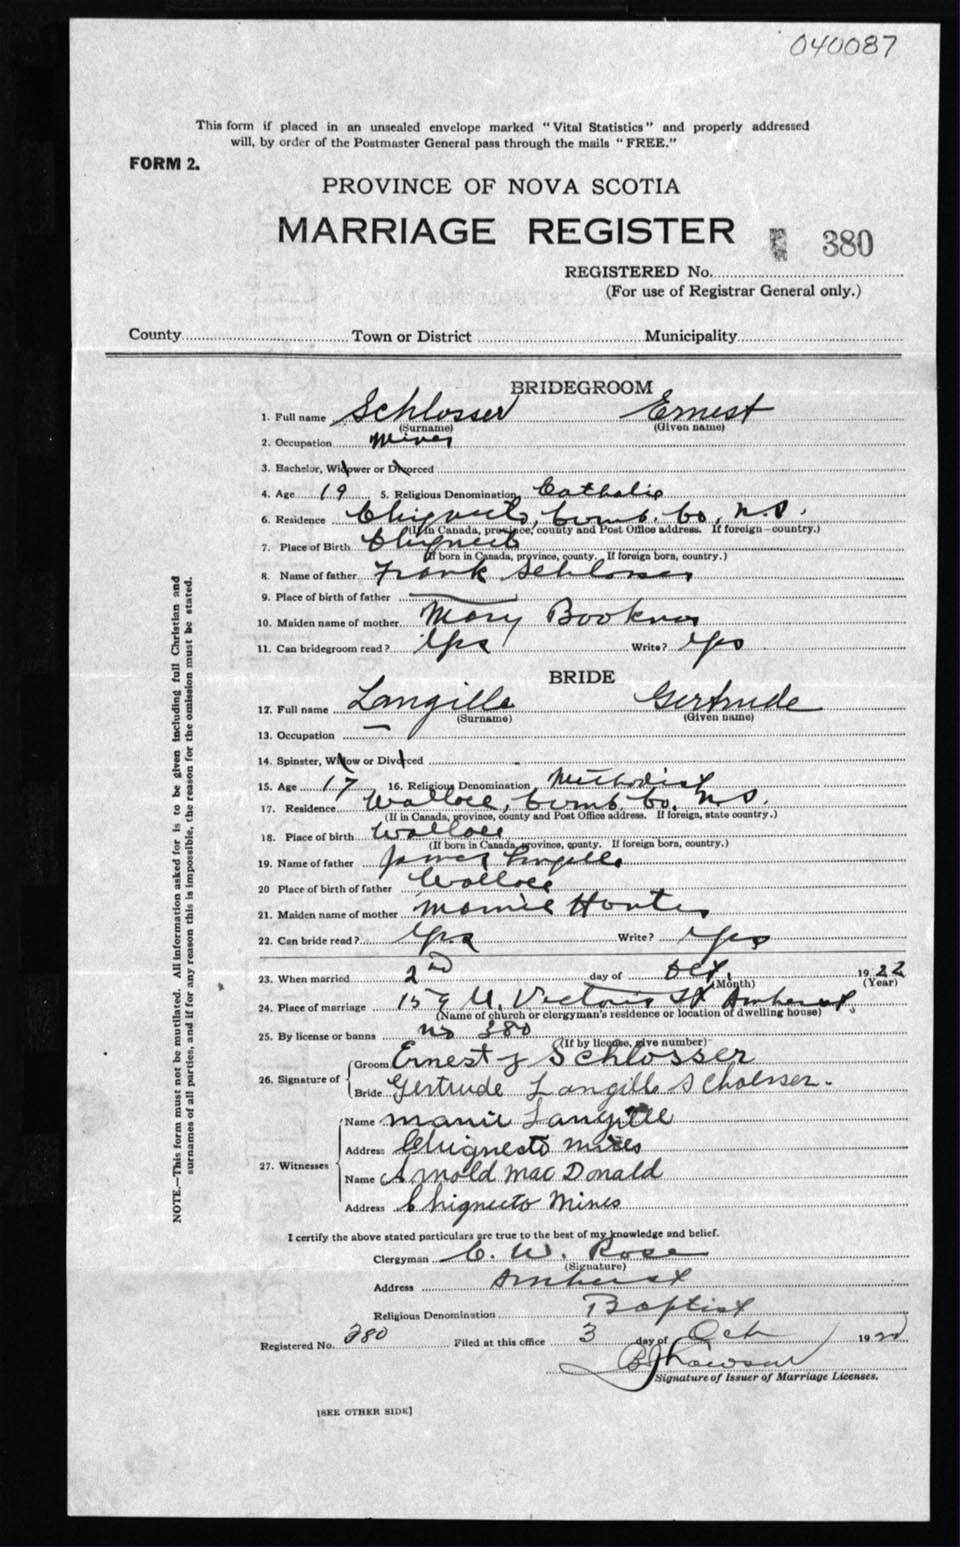 040087
This form if placed in an unsealed envelope marked "Vital Statistics" and properly addressed
will, by order of the Postmaster General pass through the mails "FREE."
FORM 2.
PROVINCE OF NOVA SCOTIA
MARRIAGE REGISTER 380
REGISTERED No.
(For use of Registrar General only.)
County Town or District Municipality
BRIDEGROOM
1. Full name Schlosser Ernest
(Surname) (Given name)
2. Occupation Miner
3. Bachelor, Widower or Divorced
4. Age 19 5. Religious Denomination Catholic
6. Residence Chignecto, Cumb. Co, N.S.
(If in Canada, province, county and Post Office address. If foreign—country.)
7. Place of Birth Chignecto
(If born in Canada, province, county. If foreign born, country.)
8. Name of father Frank Schlosser
9. Place of birth of father
10. Maiden name of mother Mary
11. Can bridegroom read? Yes Write? Yes
BRIDE
12. Full name Langille Gertrude
(Surname) (Given name)
13. Occupation —
14. Spinster, Widow or Divorced
15. Age 17 16. Religious Denomination Methodist
17. Residence Wallace, Cumb. Co. N.S.
(If in Canada, province, county and Post Office address. If foreign, state country.)
18. Place of birth Wallace
(If born in Canada, province, county. If foreign born, country.)
19. Name of father James Langille
20 Place of birth of father Wallace
21. Maiden name of mother Mamie Hunter
22. Can bride read? Yes Write? Yes
23. When married 2nd day of Oct. 1922
(Month) (Year)
24. Place of marriage Victoria St Amherst
(Name of church or clergyman's residence or location of dwelling house)
25. By license or banns No 380
(If by license, give number)
26. Signature of Groom Ernest J Schlosser
Bride Gertrude Langille Scholsser.
27. Witnesses Name Langille
Address Chignecto Mines
Name Arnold MacDonald
Address Chignecto Mines
I certify the above stated particulars are true to the best of my knowledge and belief.
Clergyman C. W. Rose
(Signature)
Address Amherst
Religious Denomination Baptist
Registered No. 380 Filed at this office 3 day of Oct 1922
Signature of Issuer of Marriage Licenses.
[SEE OTHER SIDE]
NOTE.—This form must not be mutilated. All information asked for is to be given including full Christian and
surnames of all parties, and if for any reason this is impossible, the reason for the omission must be stated.